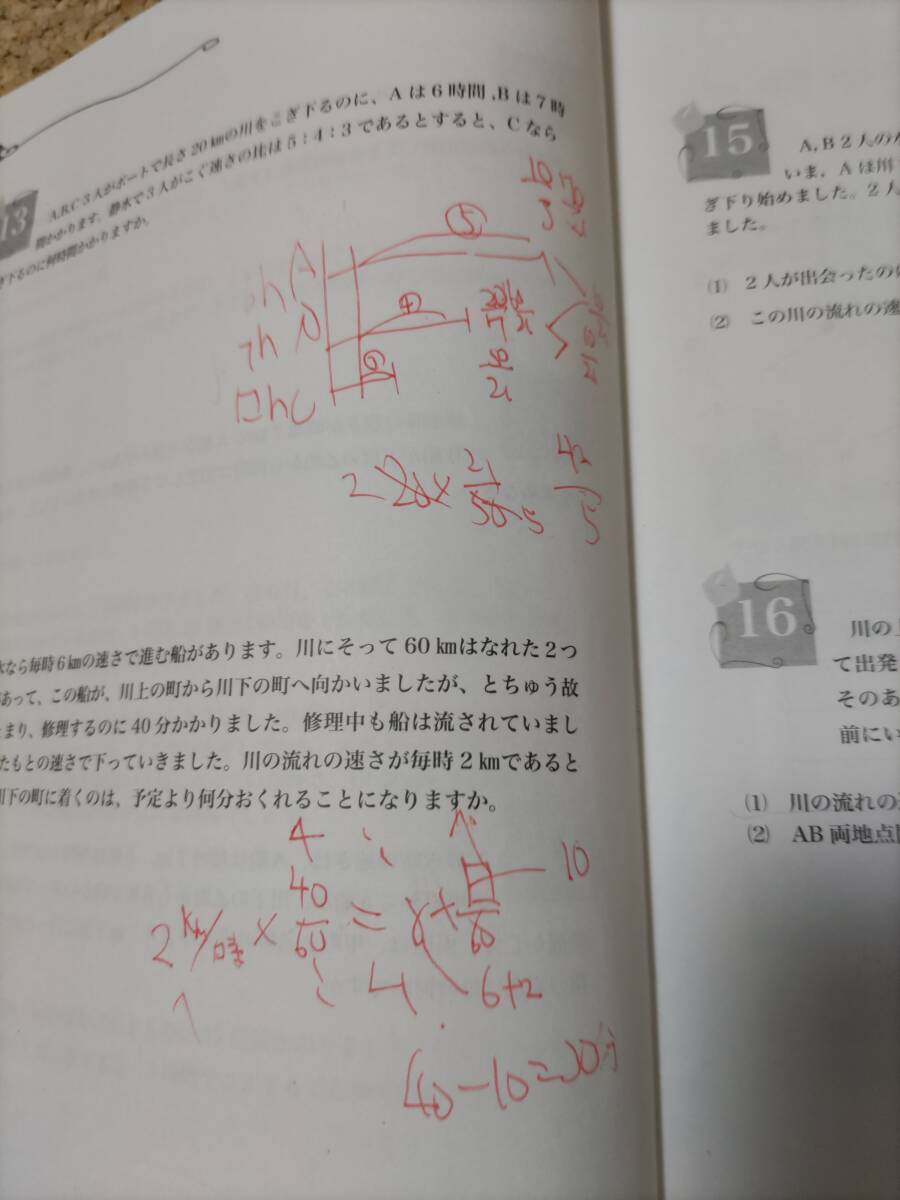 13
A,B,C 3人がボートで長さ20kmの川をこぎ下るのに、Aは6時間,Bは7時
間かかります。静水で3人がこぐ速さの比は5:4:3であるとすると、Cなら
ぎ下るのに何時間かかりますか。
⑤
10/3
A
7h
④
□h C
10/21
2 20×21/50 5 42/5
水なら毎時6kmの速さで進む船があります。川にそって60kmはなれた2つ
があって、この船が、川上の町から川下の町へ向かいましたが、とちゅう故
まり、修理するのに40分かかりました。修理中も船は流されていまし
たもとの速さで下っていきました。川の流れの速さが毎時2kmであると
川下の町に着くのは、予定より何分おくれることになりますか。
4 : 1
2km/時×40/60=8×□/60 10
: 4 6+2
1
40-10=30分
15
A,B2人の
いま、Aは川
ぎ下り始めました。2人
ました。
(1) 2人が出会ったの
(2) この川の流れの速
16
川の上
て出発
そのあ
前にい
(1) 川の流れの
(2) AB両地点